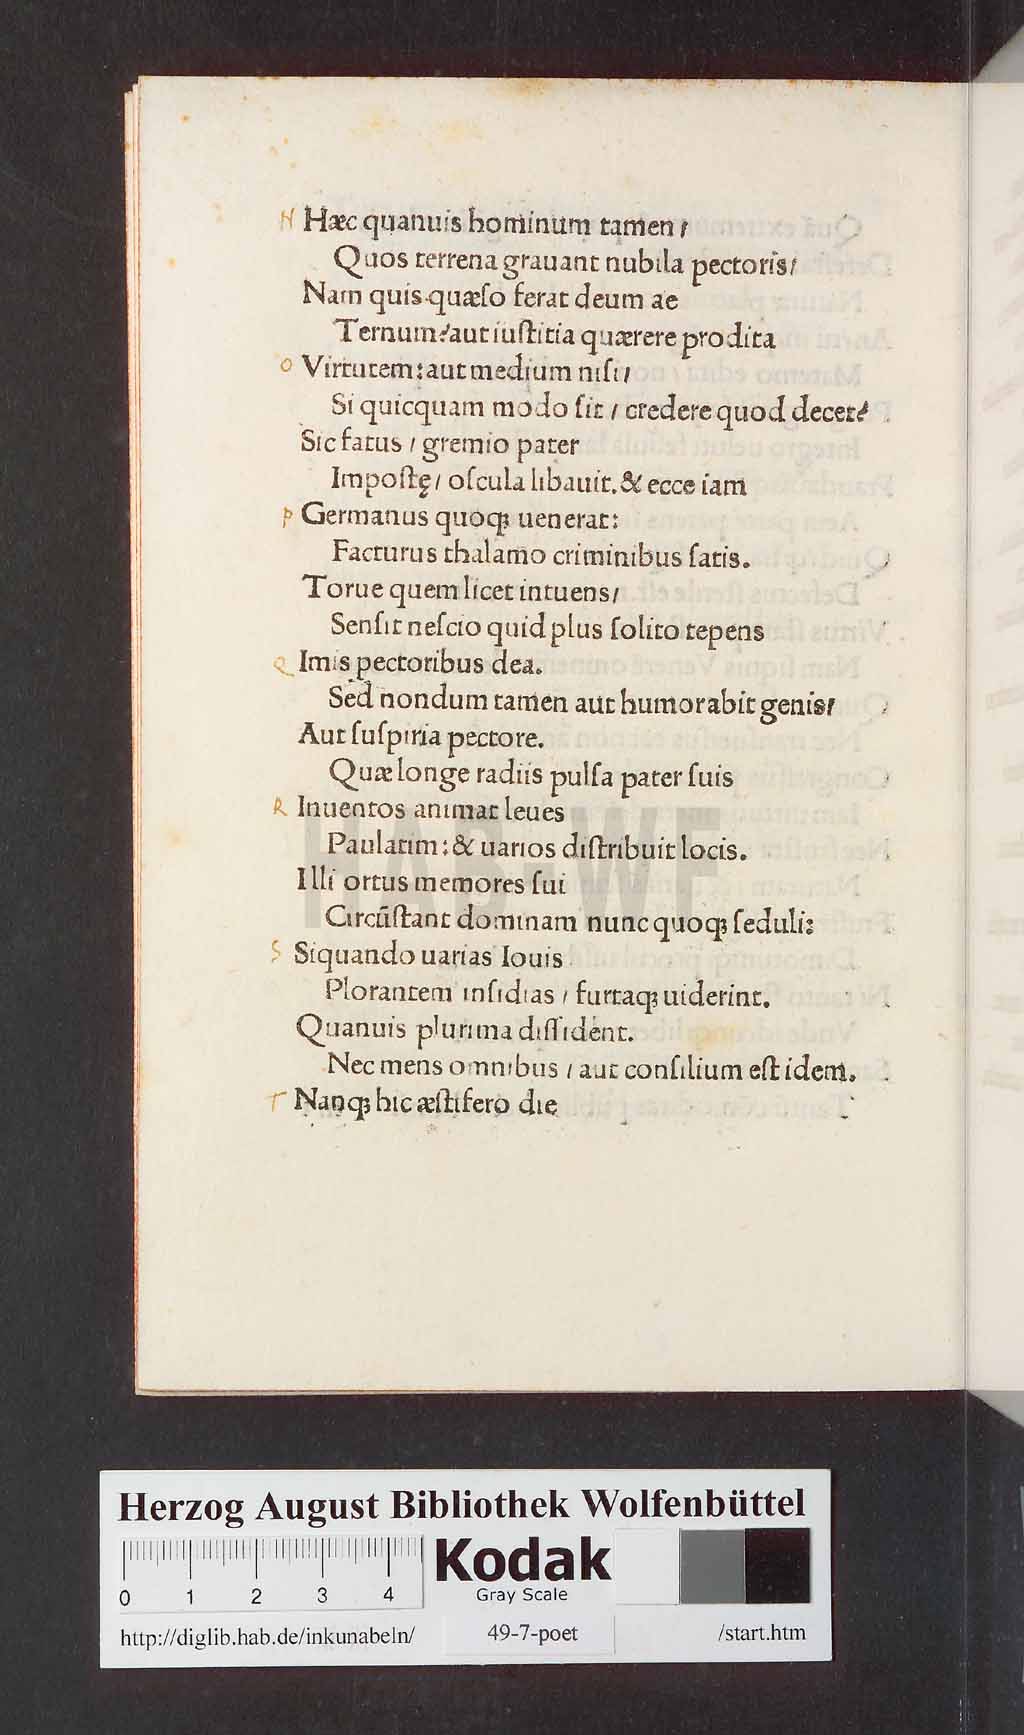 N Hæc quanuis hominum tamen /
Quos terrena grauant nubila pectoris /
Nam quis quæſo ferat deum ae
Ternum? aut iuſtitia quærere prodita
O Virtutem: aut medium niſi /
Si quicquam modo ſit / credere quod decet?
Sic fatus / gremio pater
Impoſtę / oſcula libauit. & ecce iam
P Germanus quoqꝫ uenerat:
Facturus thalamo criminibus ſatis.
Torue quem licet intuens /
Senſit neſcio quid plus ſolito tepens
Q Imis pectoribus dea.
Sed nondum tamen aut humorabit genis /
Aut ſuſpiria pectore.
Quæ longe radiis pulſa pater ſuis
R Inuentos animat leues
Paulatim: & uarios diſtribuit locis.
Illi ortus memores ſui
Circūſtant dominam nunc quoqꝫ ſeduli:
S Siquando uarias Iouis
Plorantem inſidias / furtaqꝫ uiderint.
Quanuis plurima diſſident.
Nec mens omnibus / aut conſilium eſt idem.
T Nanqꝫ hic æſtifero die
HAB-WF
Herzog August Bibliothek Wolfenbüttel
0 1 2 3 4
Kodak
Gray Scale
http://diglib.hab.de/inkunabeln/ 49-7-poet /start.htm